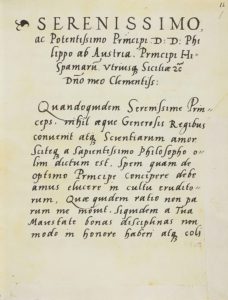 16
SERENISSIMO,
ac Potentissimo Principi D: D: Phi
lippo ab Austria. Principi Hi
spamarū Vtriusq Siciliæ &c
Dño meo Clementiss:
Quandoquidem Serenissime Prin-
ceps. nihil aeque Generosis Regibus
convenit atq Scientiarum amor
Sciteq a Sapientissimo Philosopho o
lim dictum est. Spem quam de
optimo Principe concipere debe
amus elucere in cultu erudito-
rum, Quae quidem ratio non pa
rum me movit. Siquidem a Tua
Maiestate bonas disciplinas non
modo in honore haberi atq coli